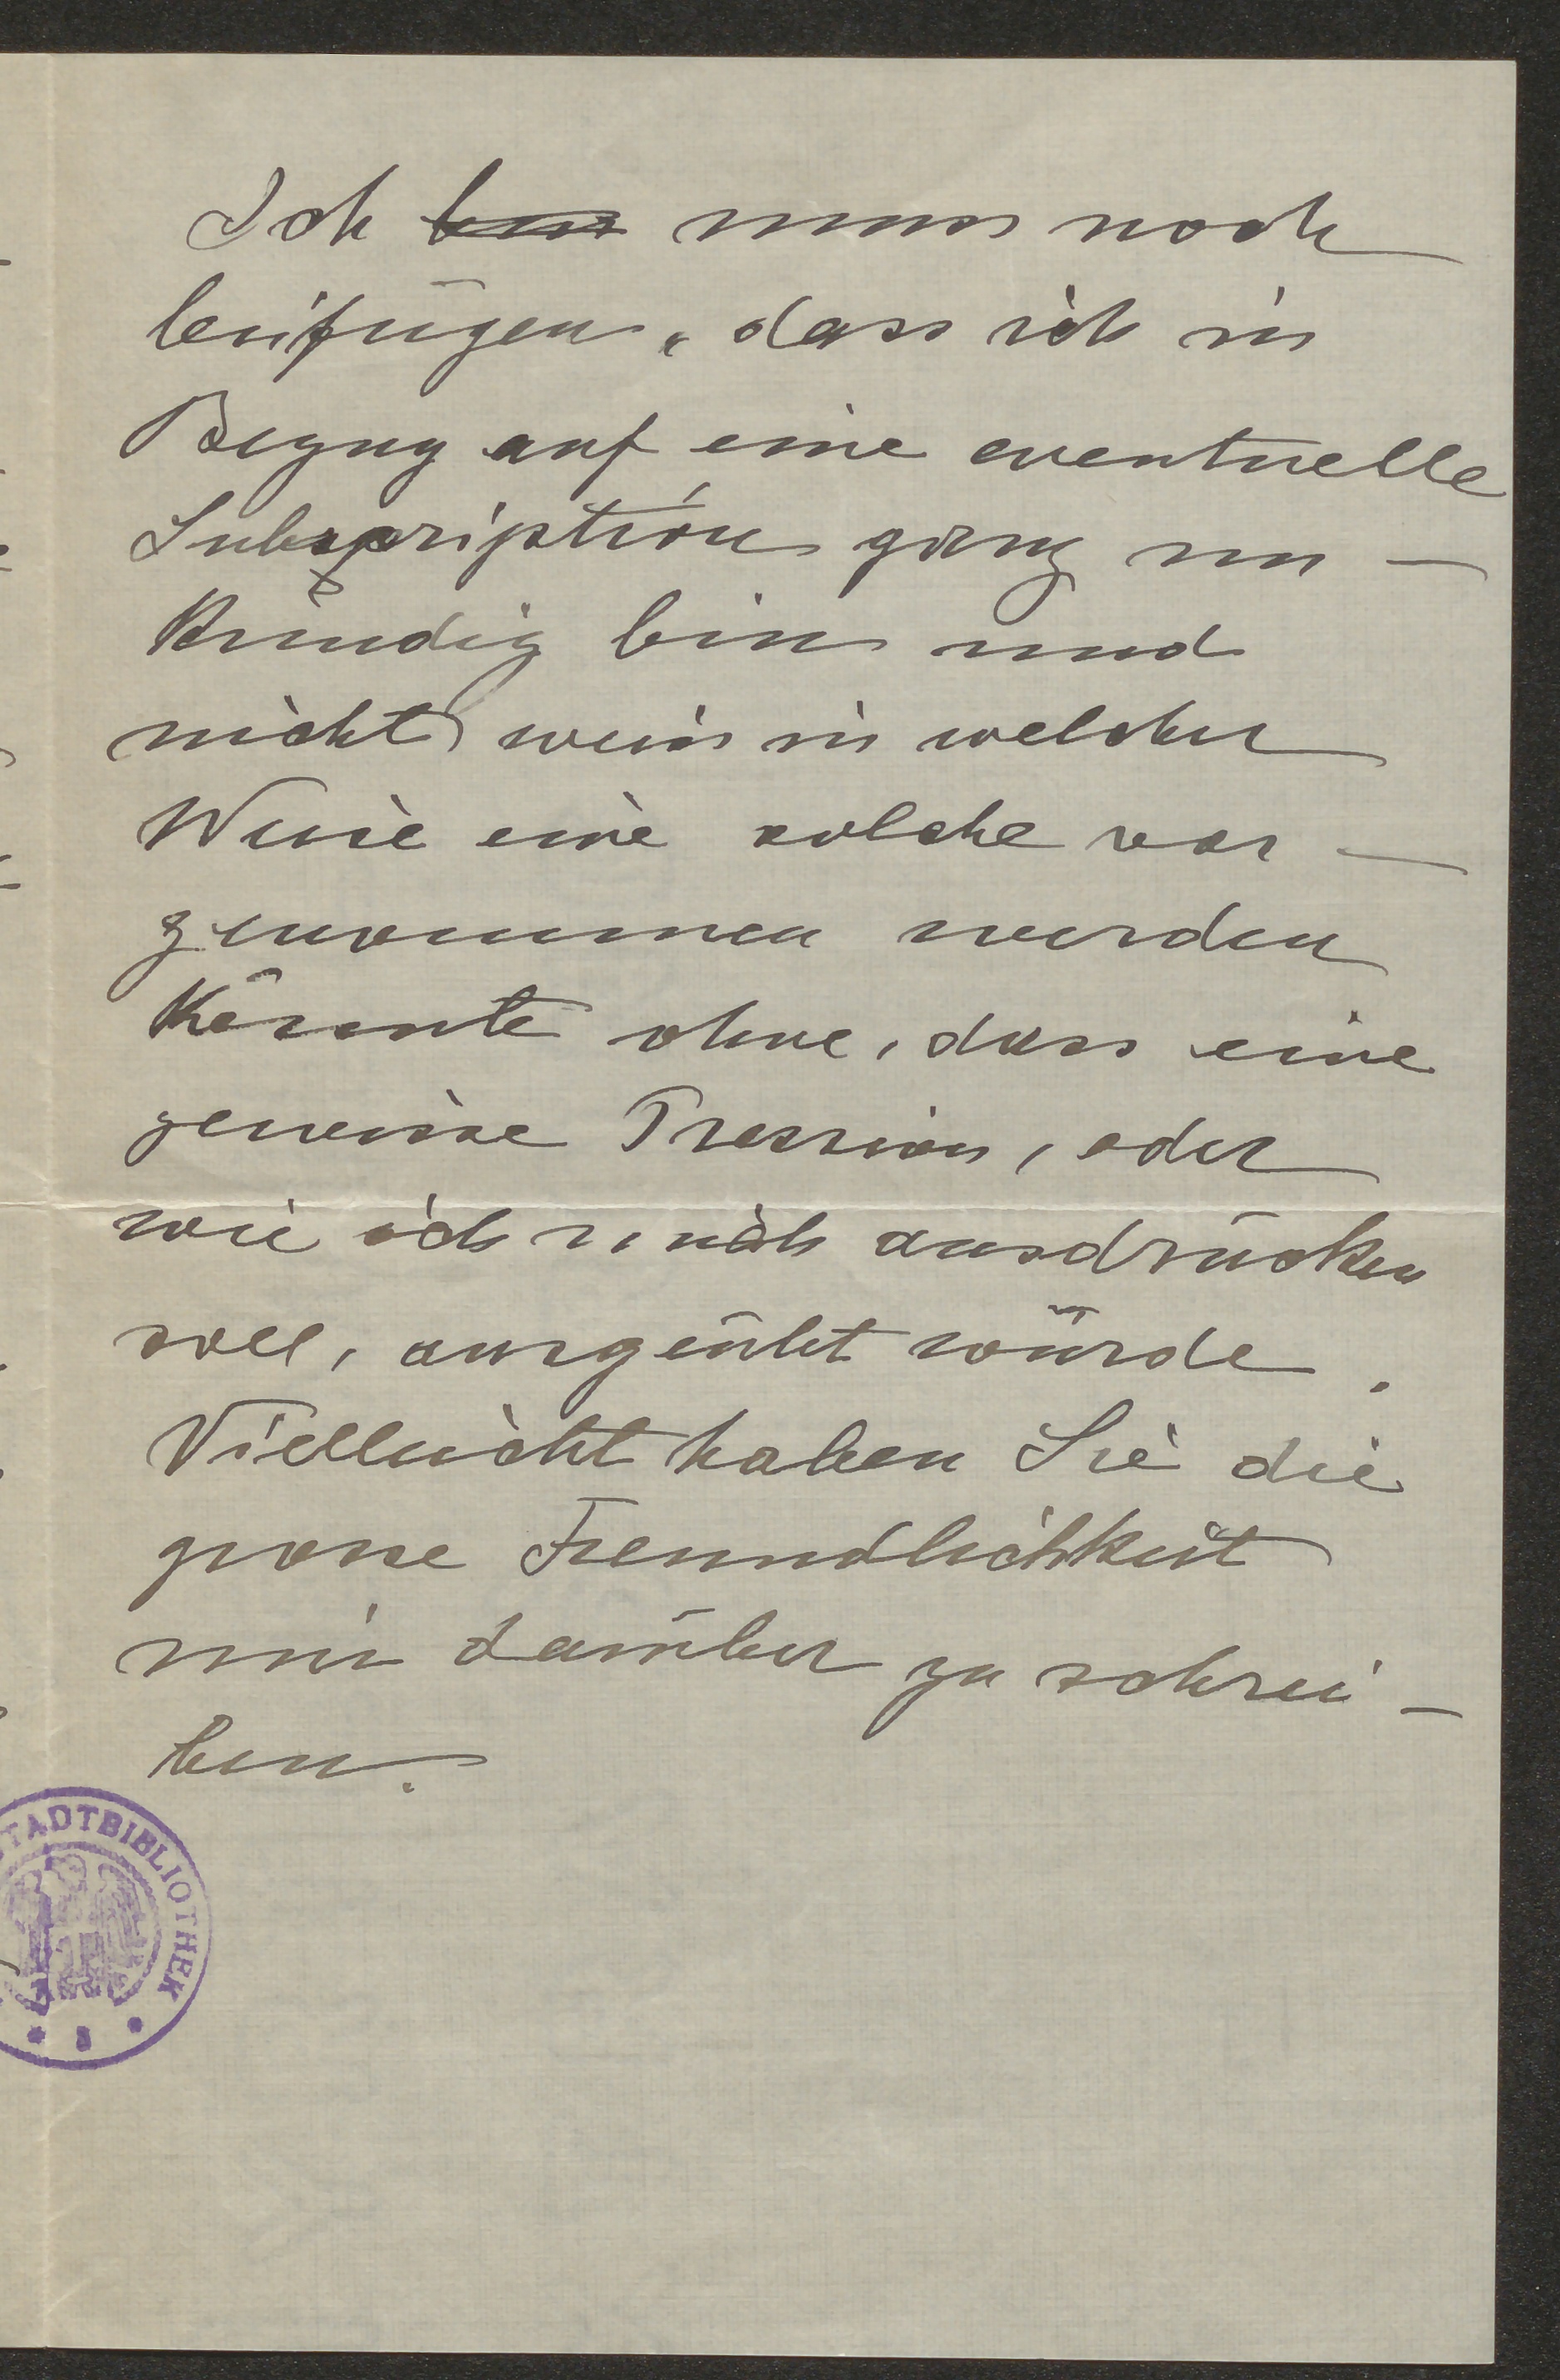 Ich bin muss noch
beifügen, dass ich in
Bezug auf eine eventuelle
Subscription ganz un-
kundig bin und
nicht weis in welcher
Weise eine solche vor-
genommen werden
könnte ohne, dass eine
gewisse Pression, oder
wie ich mich ausdrücken
soll, ausgeübt würde.
Vielleicht haben Sie die
grosse Freundlichkeit
mir darüber zu schrei-
ben.
STADTBIBLIOTHEK